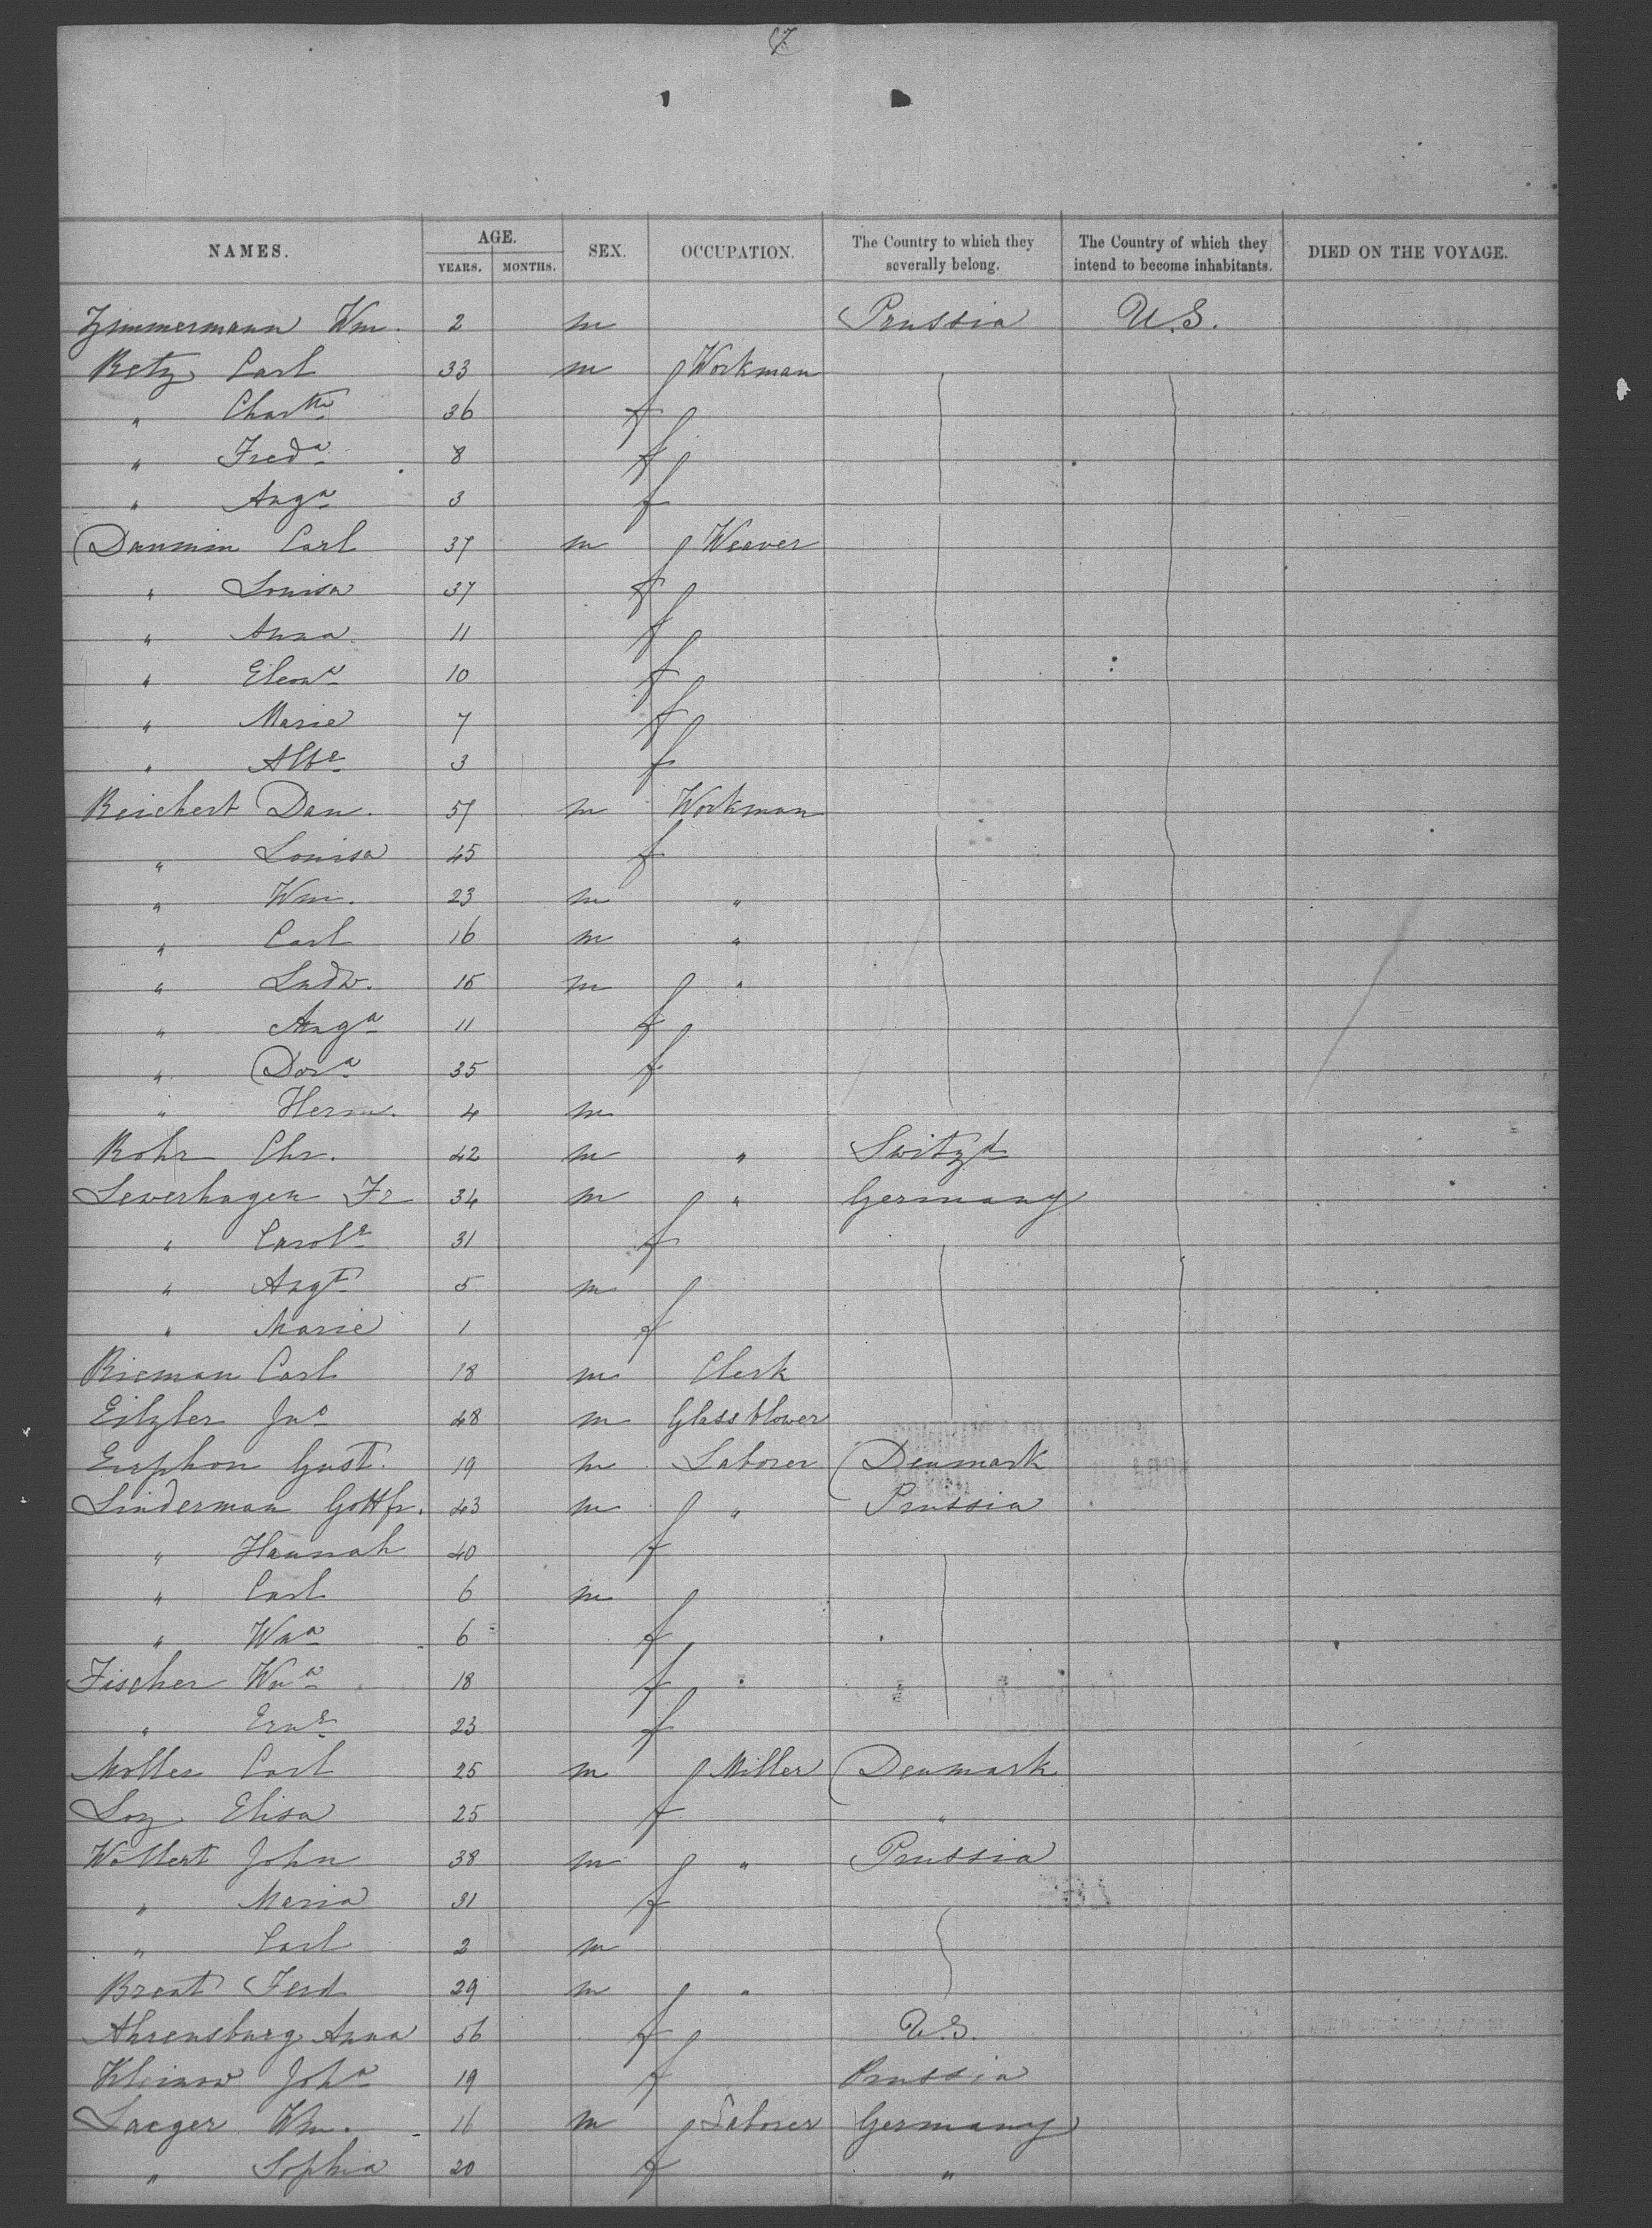 7
NAMES. AGE. YEARS. MONTHS. SEX. OCCUPATION. The Country to which they severally belong. The Country of which they intend to become inhabitants. DIED ON THE VOYAGE.
Zimmermann Wm. 2 m Prussia U.S.
Retz Carl 33 m Workman
" Chartte 36 f
" Freda 8 f
" Auga 3 f
Danmin Carl 37 m Weaver
" Louisa 37 f
" Anna 11 f
" Eleona 10 f
" Marie 7 f
" Albe 3 f
Reichert Dan. 57 m Workman
" Louisa 45 f
" Wm. 23 m "
" Carl 16 m "
" Ludw. 15 m "
" Auga 11 f
" Dora 35 f
" Herm. 4 m
Rohr Chr. 42 m " Switzd
Leverhagen Fr 34 m " Germany
" Carole 31 f
" Augt 5 m
" Marie 1 f
Rieman Carl 18 m Clerk
Eilzler Jno 48 m Glassblower
Eurphon Gust. 19 m Laborer Denmark
Linderman Gottfr. 43 m " Prussia
" Hannah 40 f
" Carl 6 m
" Wma 6 f
Fischer Wma 18 f
" Erne 23 f
Moller Carl 25 m Miller Denmark
Loz Elisa 25 f "
Wollert John 38 m " Prussia
" Maria 31 f
" Carl 2 m
Brent Ferd 29 m "
Ahrensburg Anna 56 f U.S.
Kleinow Joha 19 f Prussia
Saeger Wm. 16 m Laborer Germany
" Sophia 20 f "